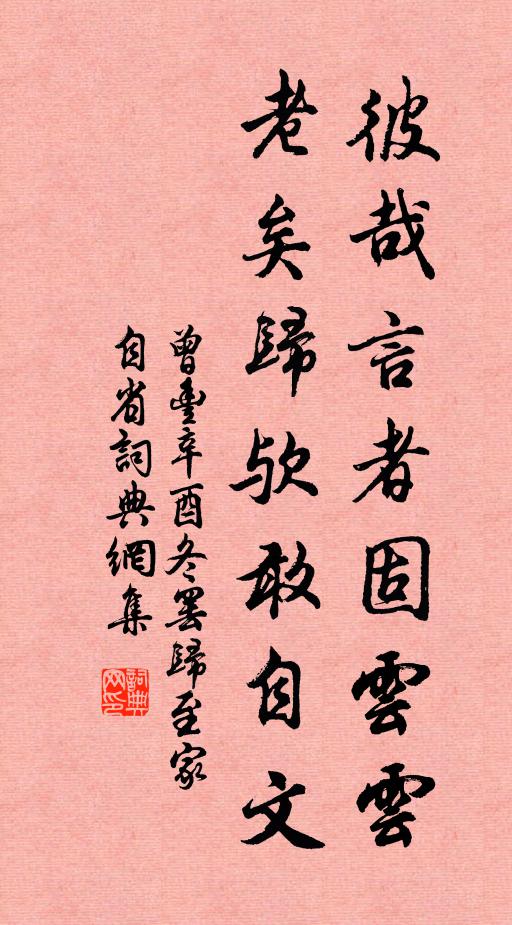 彼哉言者固雲雲
老矣歸欤敢自文
曾豐辛酉冬罢歸至家
自省詞典網集
詞典网印